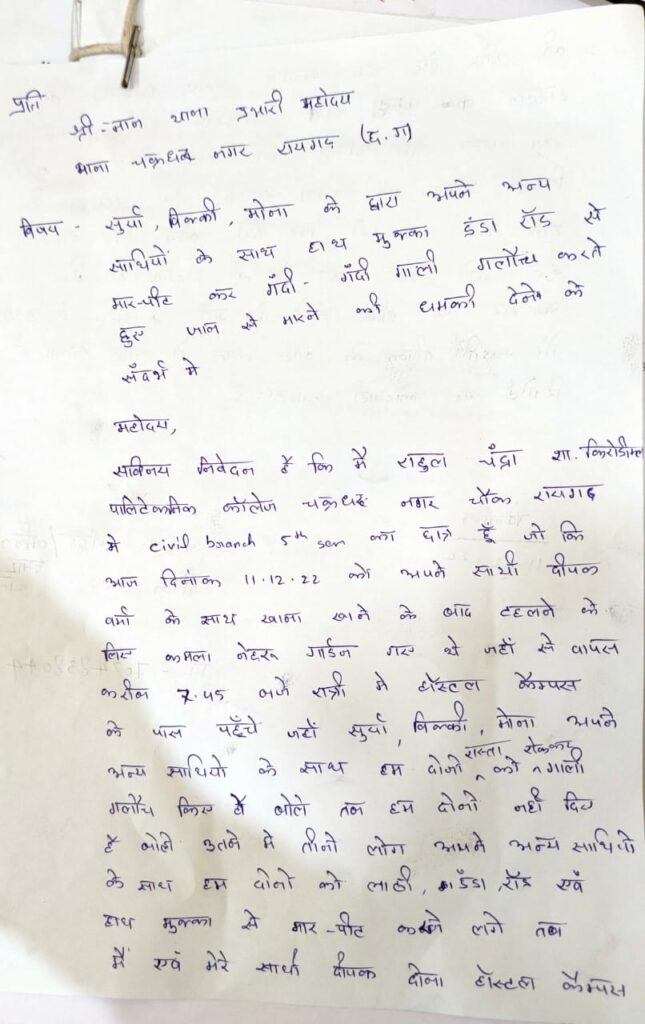 प्रति
श्रीमान थाना प्रभारी महोदय
थाना चक्रधर नगर रायगढ़ (छ.ग)
विषय - सुर्या, विक्की, मोना के द्वारा अपने अन्य
साथियों के साथ हाथ मुक्का डंडा रॉड से
मार-पीट कर गंदी-गंदी गाली गलौच करते
हुए जान से मारने की धमकी देने के
संदर्भ मे
महोदय,
सविनय निवेदन है कि मै राहुल चंद्रा शा. किरोडीमल
पालिटेकनिक कॉलेज चक्रधर नगर चौक रायगढ़
मे civil branch 5th sem का छात्र हूँ जो कि
आज दिनांक 11.12.22 को अपने साथी दीपक
वर्मा के साथ खाना खाने के बाद टहलने के
लिए कमला नेहरू गार्डन गए थे जहाँ से वापस
करीब 7.45 बजे रात्री मे हॉस्टल कैम्पस
के पास पहुँचे जहाँ सुर्या, विक्की, मोना अपने
अन्य साथियो के साथ हम दोनो को रास्ता रोककर गाली
गलौच किए हो बोले तब हम दोनो नही दिए
है बोले उतने मे तीनो लोग अपने अन्य साथियो
के साथ हम दोनो को लाठी, डंडा, रॉड एवं
हाथ मुक्का से मार-पीट करने लगे तब
मैं एवं मेरे साथी दीपक दोनो हॉस्टल कैम्पस